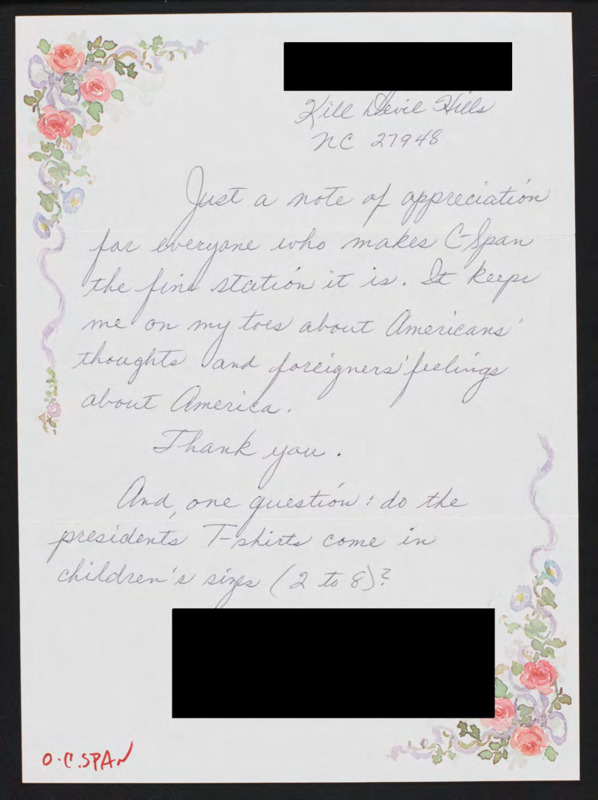 Kill Devil Hills
NC 27948
Just a note of appreciation
for everyone who makes C-Span
the fine station it is. It keeps
me on my toes about Americans'
thoughts and foreigners' feelings
about America.
Thank you.
And, one question: do the
presidents T-shirts come in
children's sizes (2 to 8)?
O-C.SPAN